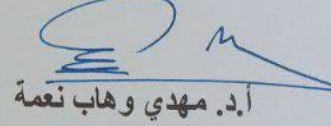 أ.د. مهدي وهاب نعمة